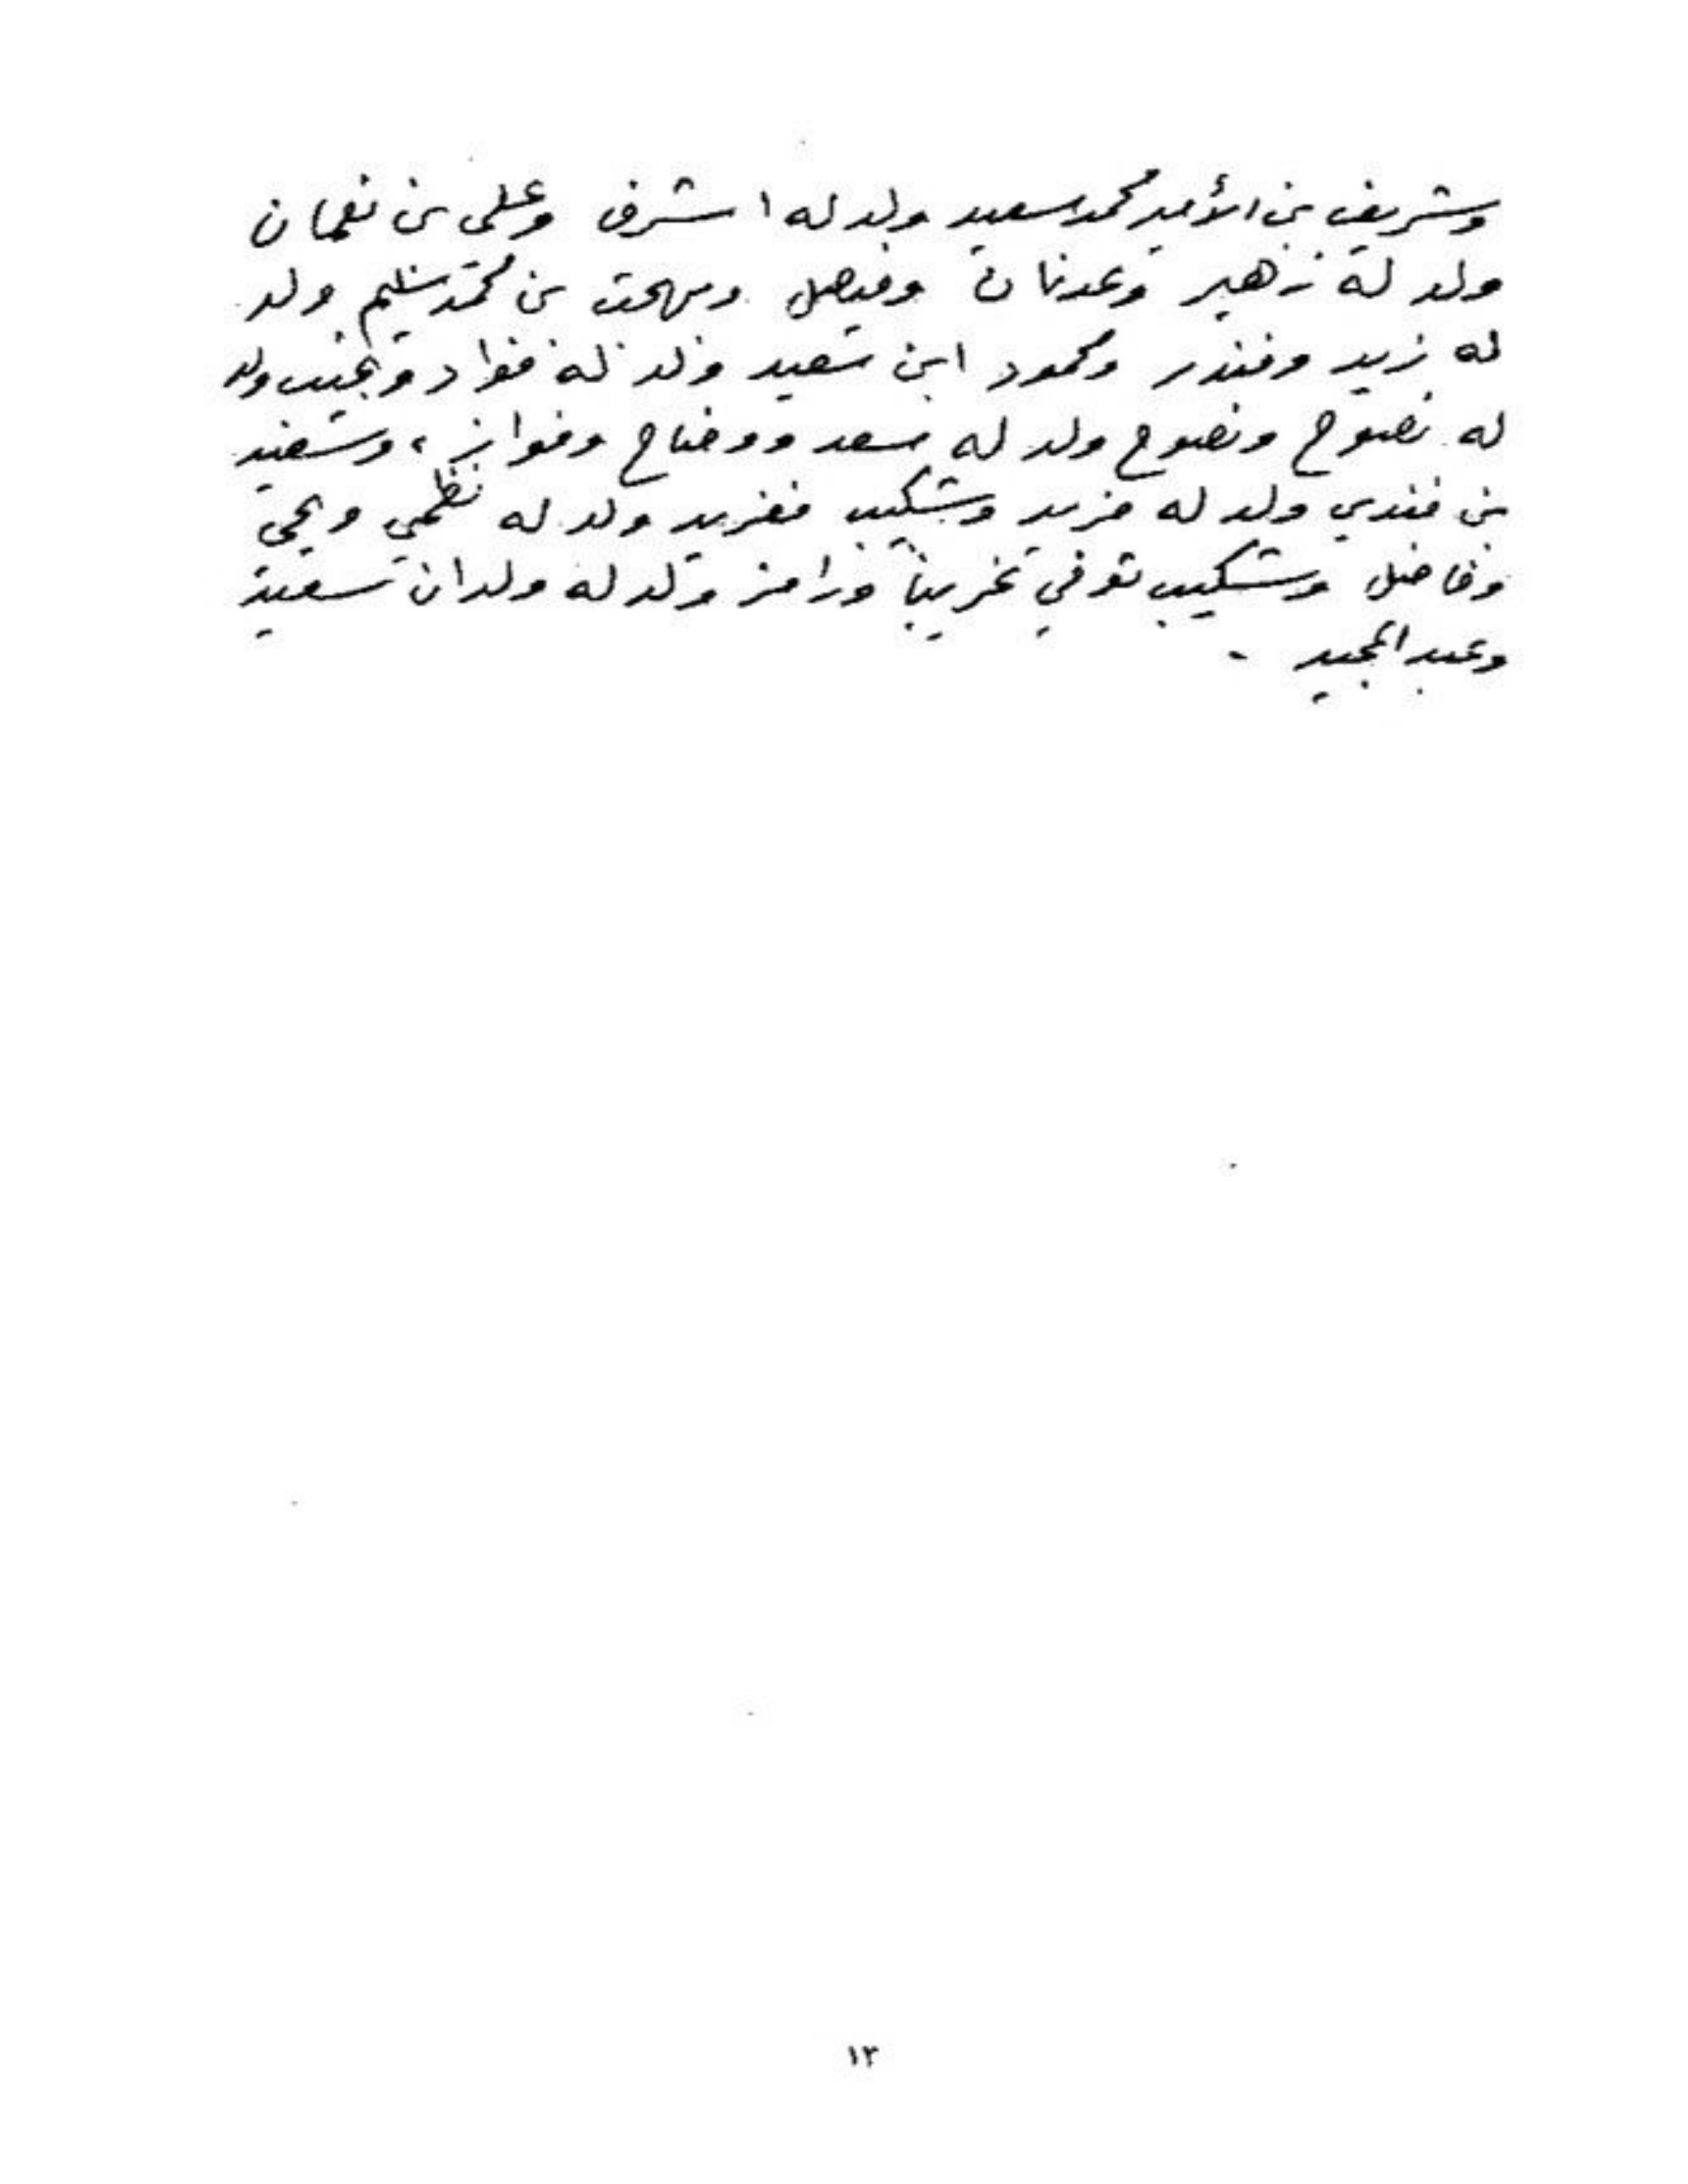 وشريف بن الأمير محمد سعيد ولد له اشرف وعلي بن نعمان
ولد له زهير وعدنان وفيصل وبهجت بن محمد سليم ولد
له زيد ومنذر ومحمود ابن سعيد ولد له فواد ونجيب ولد
له نصوح ونصوح ولد له سعد ووضاح وفواز، وسعيد
بن فندي ولد له فريد وشكيب ففريد ولد له نظمي ويحي
وفاضل وشكيب توفي ورامز ولد له ولدان سعيد
وعبد المجيد .
١٣